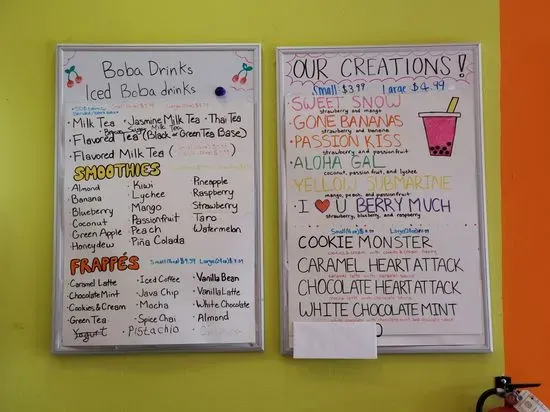 Boba Drinks
Iced Boba drinks
Milk Tea • Jasmine Milk Tea • Thai Tea
Brown Sugar Milk Tea
• Flavored Tea (Black or Green Tea Base)
• Flavored Milk Tea
SMOOTHIES
• Almond • Kiwi • Pineapple
• Banana • Lychee • Raspberry
• Blueberry • Mango • Strawberry
• Coconut • Passionfruit • Taro
• Green Apple • Peach • Watermelon
• Honeydew • Piña Colada
FRAPPÉS
• Caramel Latte • Iced Coffee • Vanilla Bean
• Chocolate Mint • Java Chip • Vanilla Latte
• Cookies & Cream • Mocha • White Chocolate
• Green Tea • Spice Chai • Almond
Yogurt • Pistachio
OUR CREATIONS!
Small $3.99 Large $4.99
• SWEET SNOW
strawberry and mango
• GONE BANANAS
strawberry and banana
• PASSION KISS
strawberry and passionfruit
• ALOHA GAL
coconut, passion fruit, and lychee
• YELLOW SUBMARINE
mango, peach, and passionfruit
• I ❤ U BERRY MUCH
strawberry, blueberry, and raspberry
COOKIE MONSTER
CARAMEL HEART ATTACK
CHOCOLATE HEART ATTACK
WHITE CHOCOLATE MINT